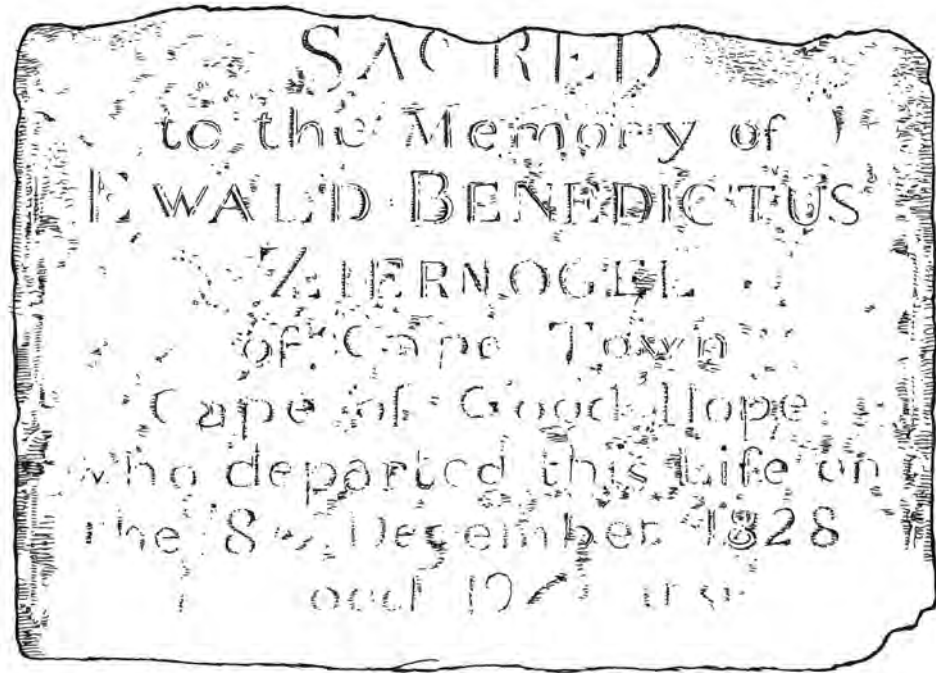 SACRED
to the Memory of
EWALD BENEDICTUS
ZIERNOGEL
of Cape Town
Cape of Good Hope
who departed this Life on
the 8 December 1828